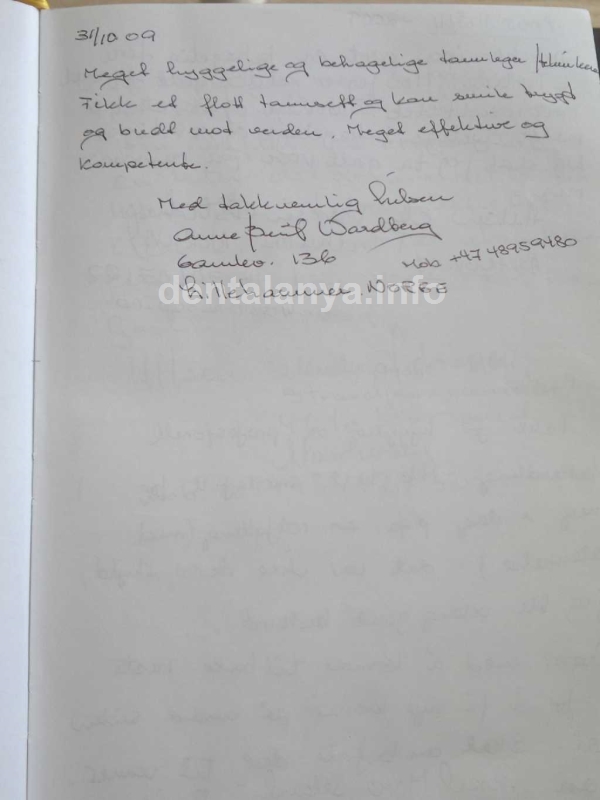 31/10 09
Meget hyggelige og behagelige tannleger
Fikk et flott tannsett og kan smile trygt
og bredt mot verden. Meget effektive og
kompetente.
Med takknemlig hilsen
Anne Wardberg
136
Mob +47 48959480
Lillehammer NORGE
dentalanya.info